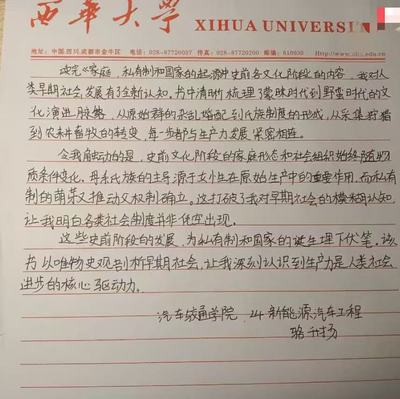 西华大学 XIHUA UNIVERSI
地址:中国.四川.成都市金牛区 电话:028-87720037 传真:028-87720200 邮编:610039
读完《家庭、私有制和国家的起源》史前各文化阶段的内容,我对人
类早期社会发展有了全新认知。书中清晰梳理了蒙昧时代到野蛮时代的文
化演进脉络,从原始群的杂乱婚配到氏族制度的形成,从采集狩猎
到农耕畜牧的转变,每一步都与生产力发展紧密相连。
令我触动的是,史前文化阶段的家庭形态和社会组织始终随物
质条件变化。母系氏族的主导源于女性在原始生产中的重要作用,而私有
制的萌芽又推动父权制确立。这打破了我对早期社会的模糊认知,
让我明白各类社会制度并非凭空出现。
这些史前阶段的发展,为私有制和国家的诞生埋下伏笔。该
书以唯物史观剖析早期社会,让我深刻认识到生产力是人类社会
进步的核心驱动力。
汽车与交通学院 新能源汽车工程
骆